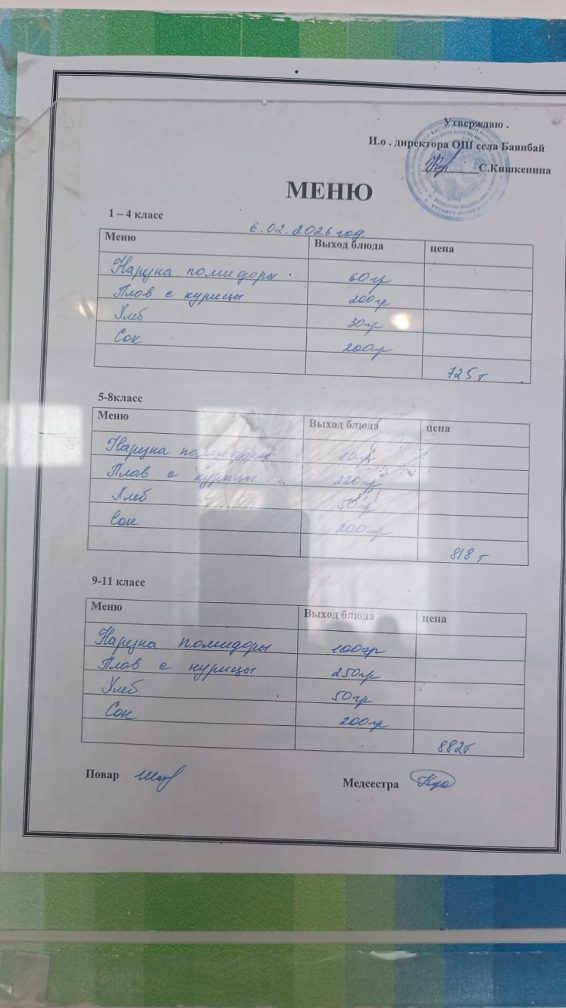 Утверждаю .
И.о . директора ОШ села Баянбай
С.Кишкенина
МЕНЮ
1 – 4 класс
6.02.2026 год
Меню Выход блюда цена
Нарезка помидоры 60гр
Плов с курицы 200гр
Хлеб 30гр
Сок 200гр
725 т
5-8класс
Меню Выход блюда цена
Нарезка помидоры
Плов с курицы 220гр
Хлеб 50гр
Сок 200гр
818 т
9-11 класс
Меню Выход блюда цена
Нарезка помидоры 100гр
Плов с курицы 250гр
Хлеб 50гр
Сок 200гр
882т
Повар
Медсестра